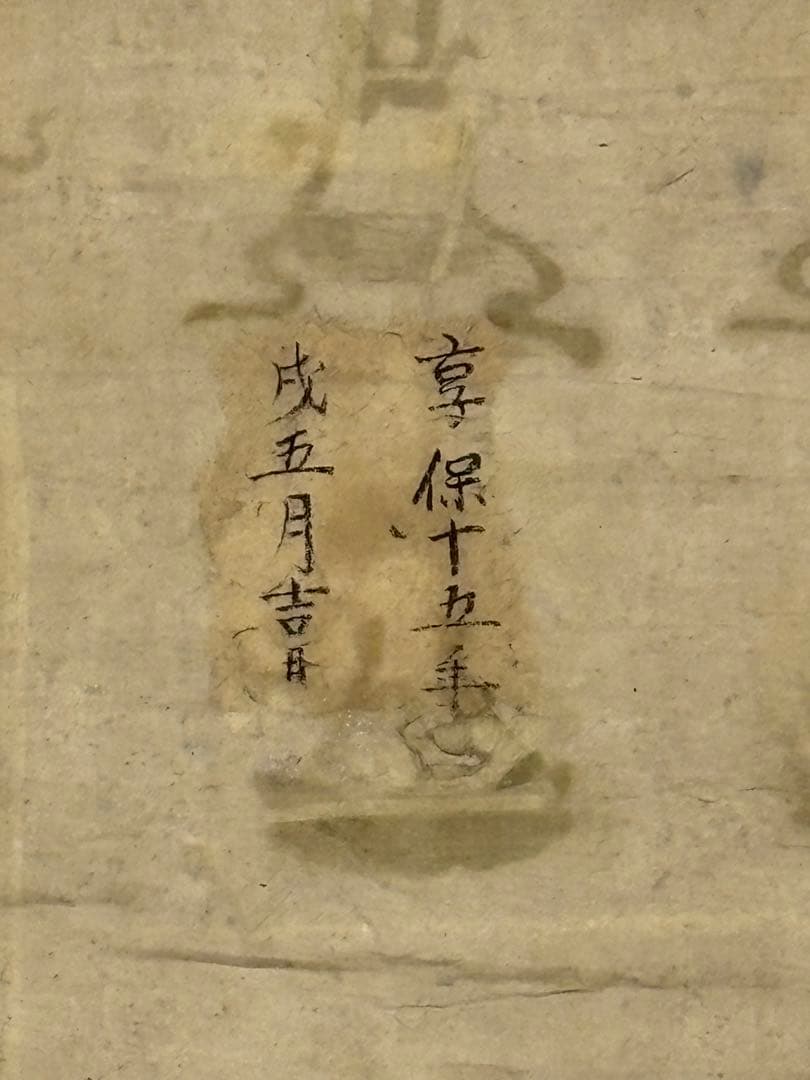 享保十五年
戌五月吉日